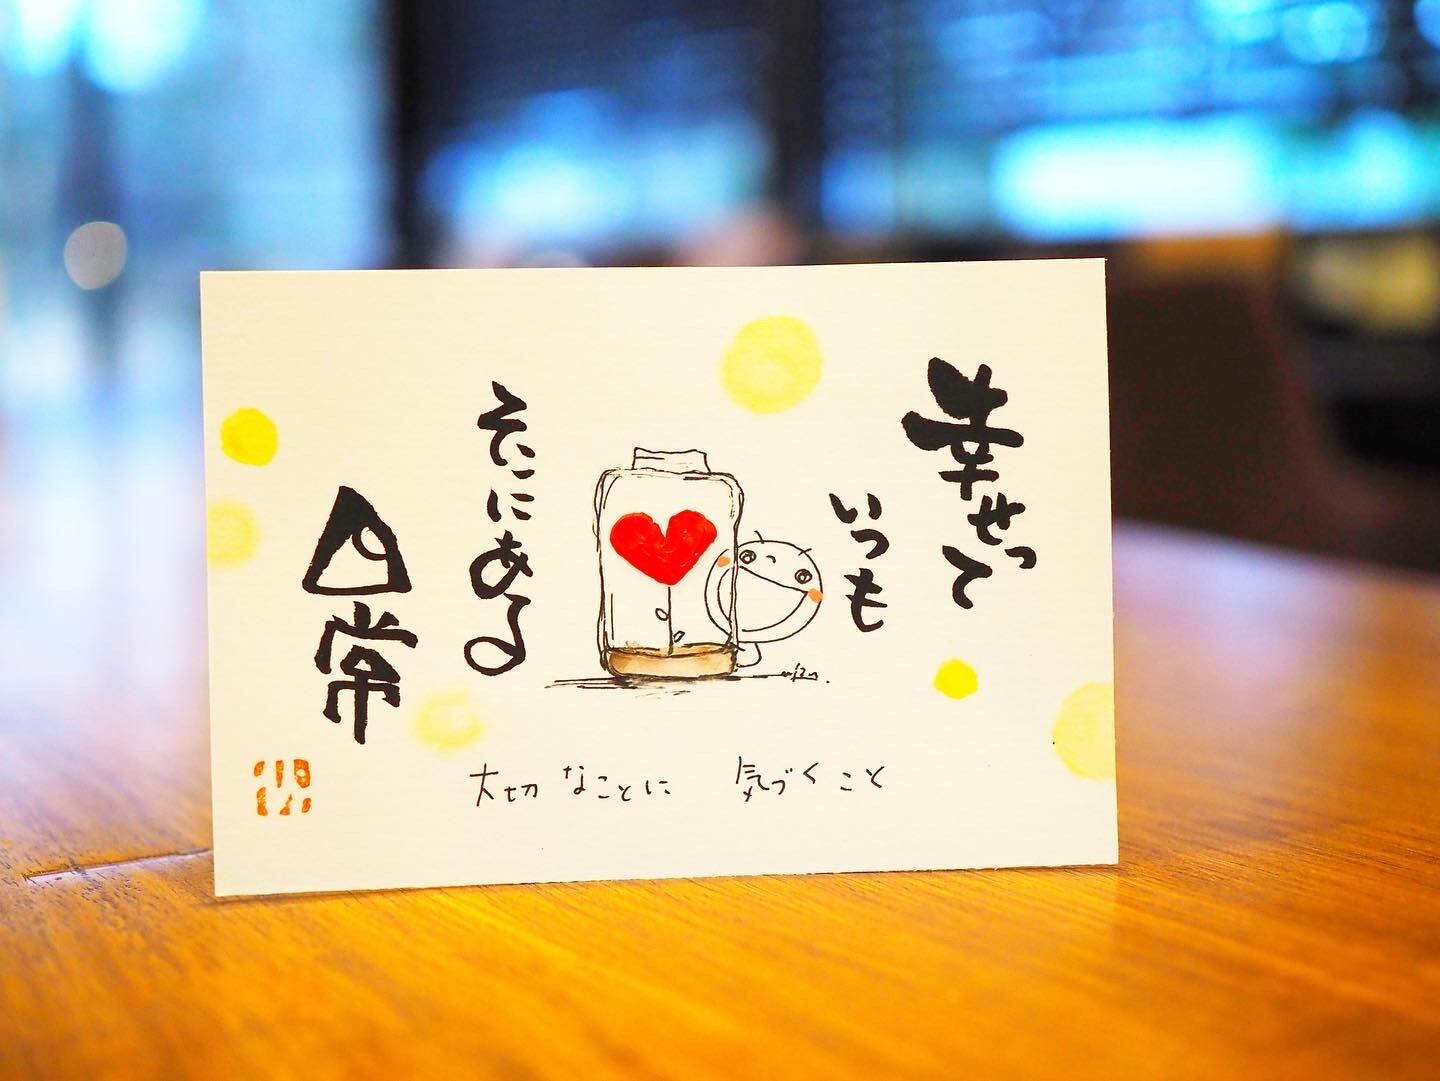 幸せって
いつも
そこにある
日常
大切なことに 気づくこと